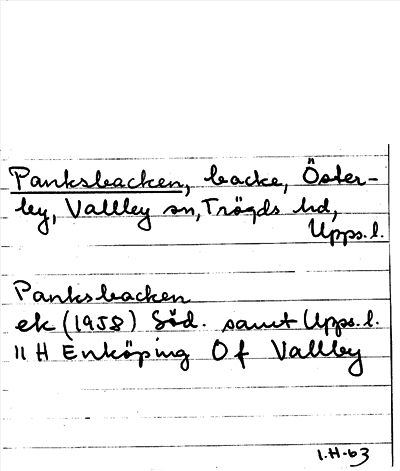 Panksbacken, backe, Öster-
by, Vallby sn, Trögds hd,
Upps. l.
Panksbacken
ek (1958) Söd. samt Upps. l.
11 H Enköping 0 f Vallby
1.H-63